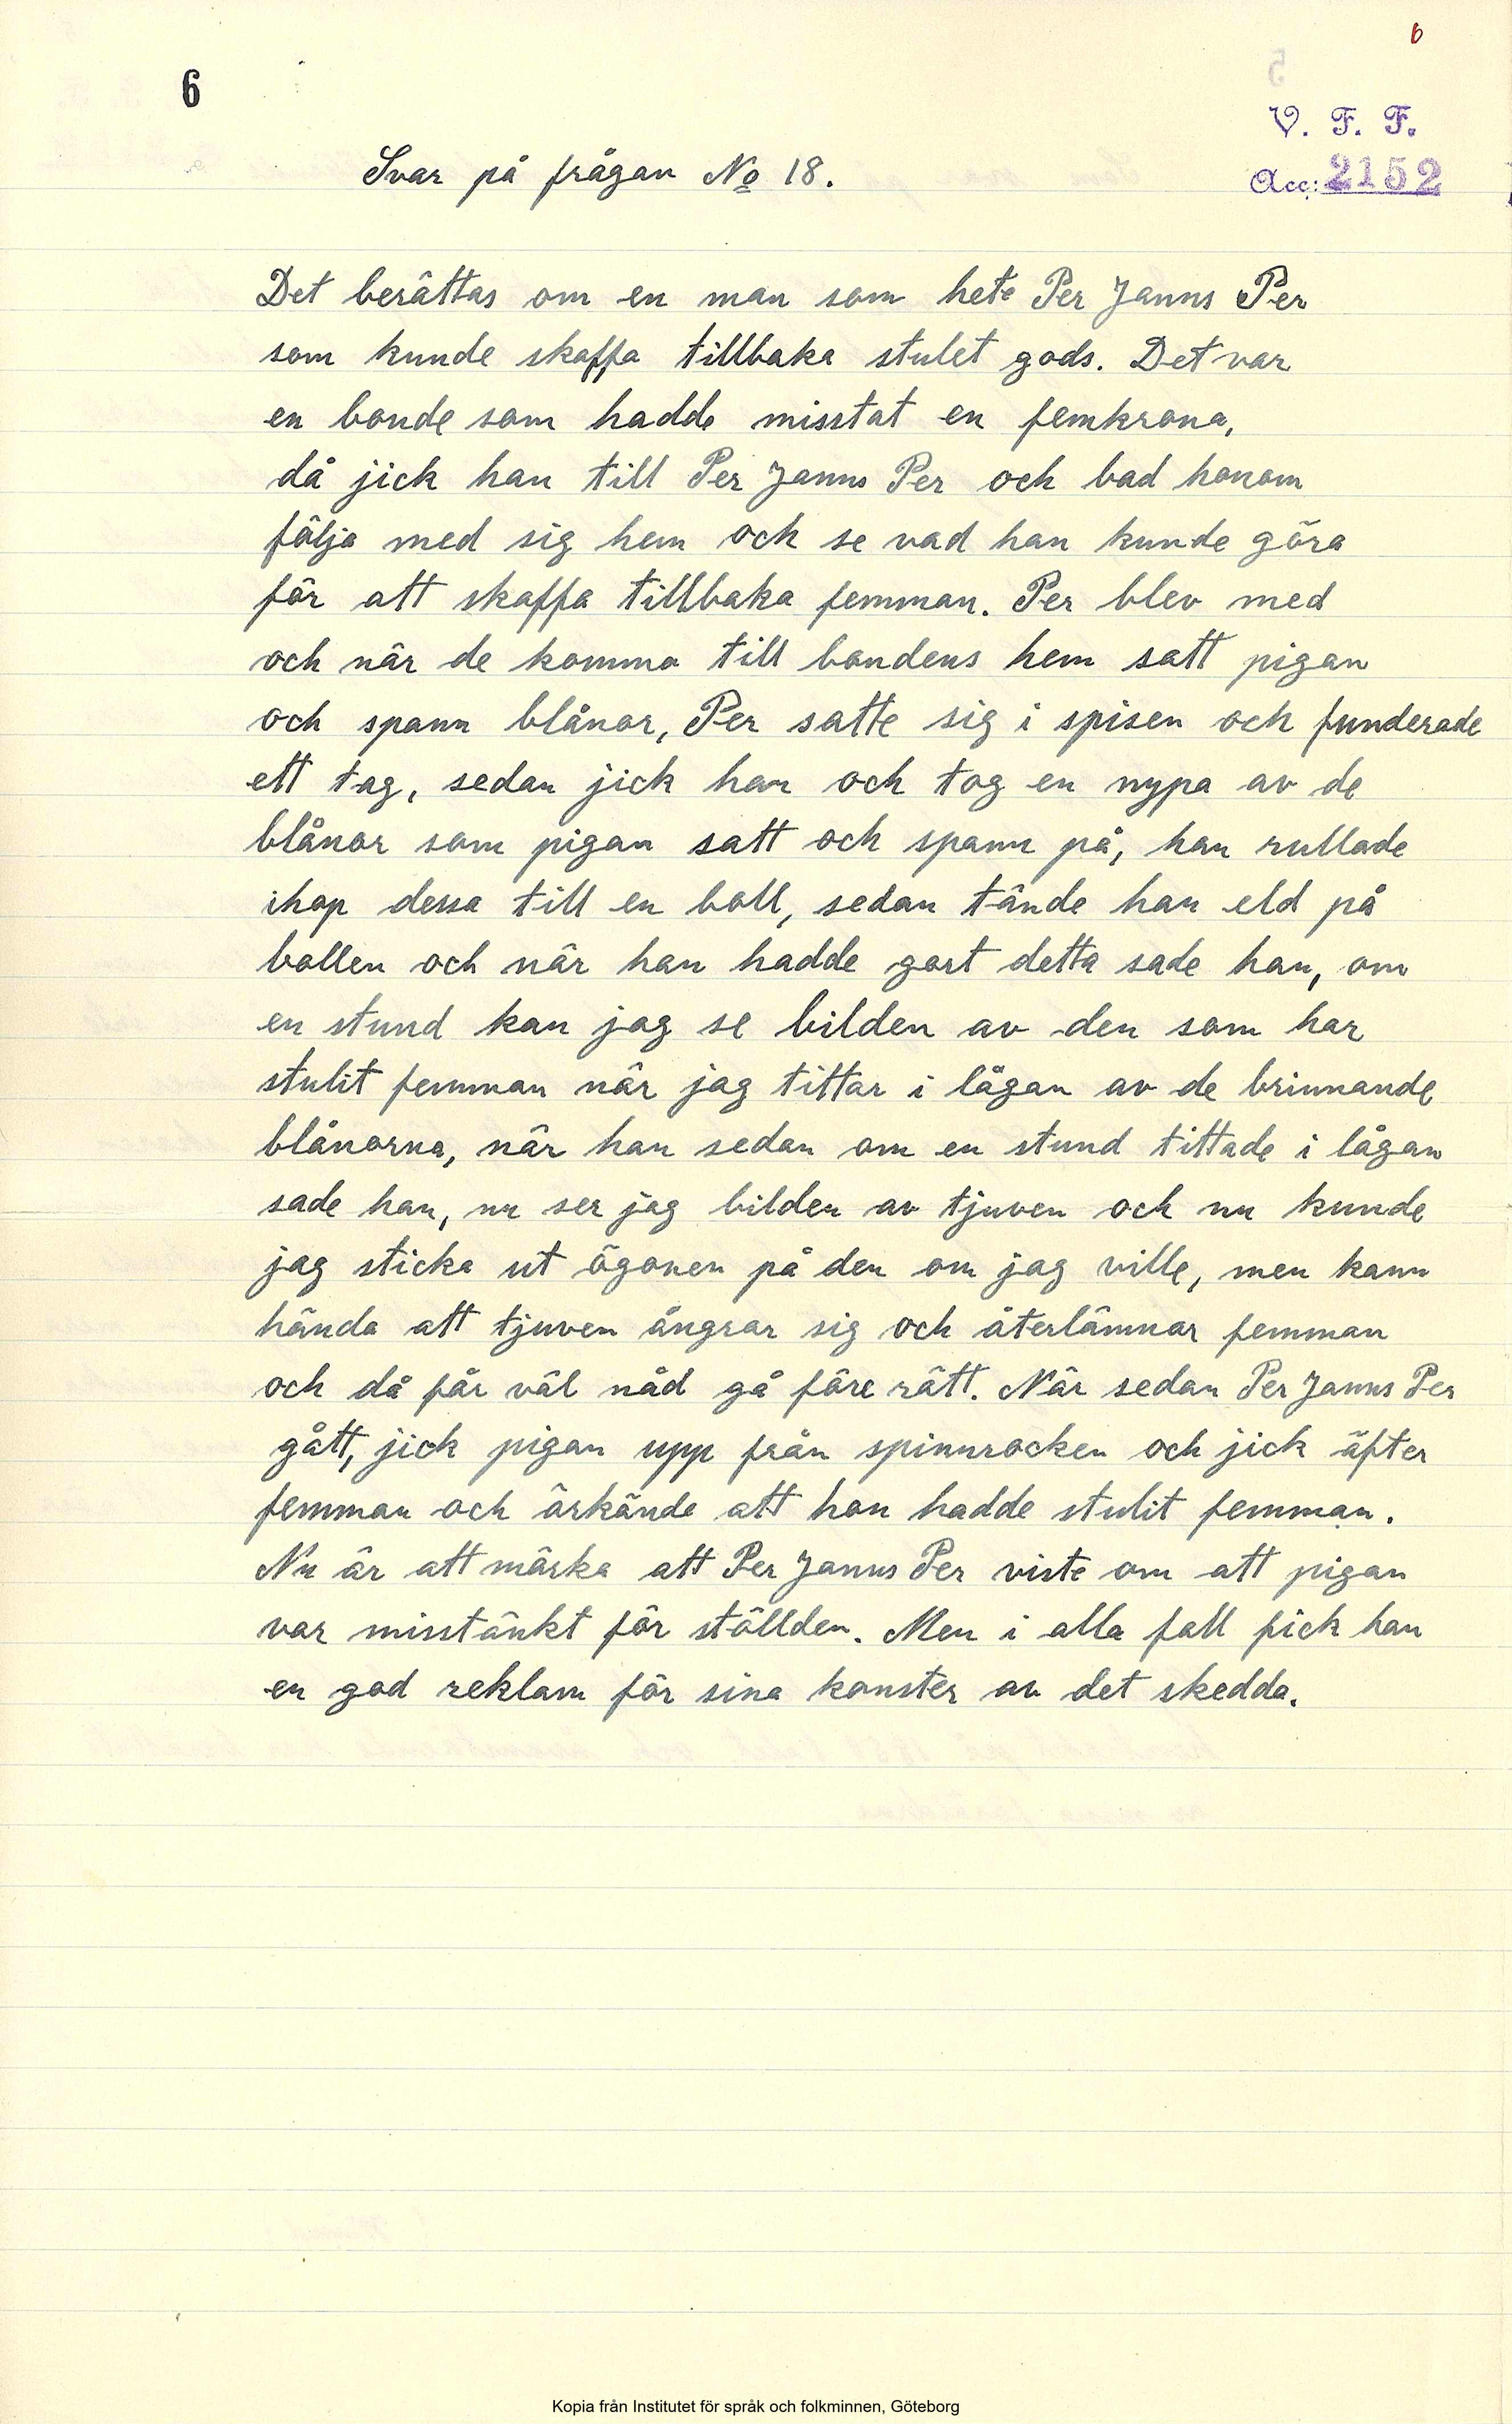 6
6
V. F. F.
Acc: 2152
Svar på frågan No 18.
Det berättas om en man som hete Per Janns Per
som kunde skaffa tillbaka stulet gods. Det var
en bonde som hadde misstat en femkrona,
då jick han till Per Janns Per och bad honom
följa med sig hem och se vad han kunde göra
för att skaffa tillbaka femman. Per blev med
och när de komma till bondens hem satt pigan
och spann blånor, Per satte sig i spisen och funderade
ett tag, sedan jick han och tog en nypa av de
blånor som pigan satt och spann på, han rullade
ihop dessa till en boll, sedan tände han eld på
bollen och när han hadde gort detta sade han, om
en stund kan jag se bilden av den som har
stulit femman när jag tittar i lågan av de brinnande
blånorna, när han sedan om en stund tittade i lågan
sade han, nu ser jag bilden av tjuven och nu kunde
jag sticka ut ögonen på den om jag ville, men kann
hända att tjuven ångrar sig och återlämnar femman
och då får väl nåd gå före rätt. När sedan Per Janns Per
gått, jick pigan upp från spinnrocken och jick äfter
femman och ärkände att hon hadde stulit femman.
Nu är att märka att Per Janns Per viste om att pigan
var misstänkt för ställden. Men i alla fall fick han
en god reklam för sina konster av det skedda.
Kopia från Institutet för språk och folkminnen, Göteborg